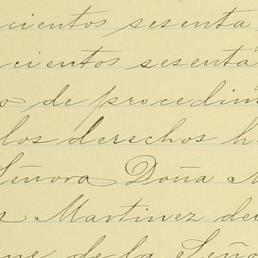 cientos sesenta
cientos sesenta
o de procedim
los derechos h
Señora Doña M
Martinez de
que de la Seño